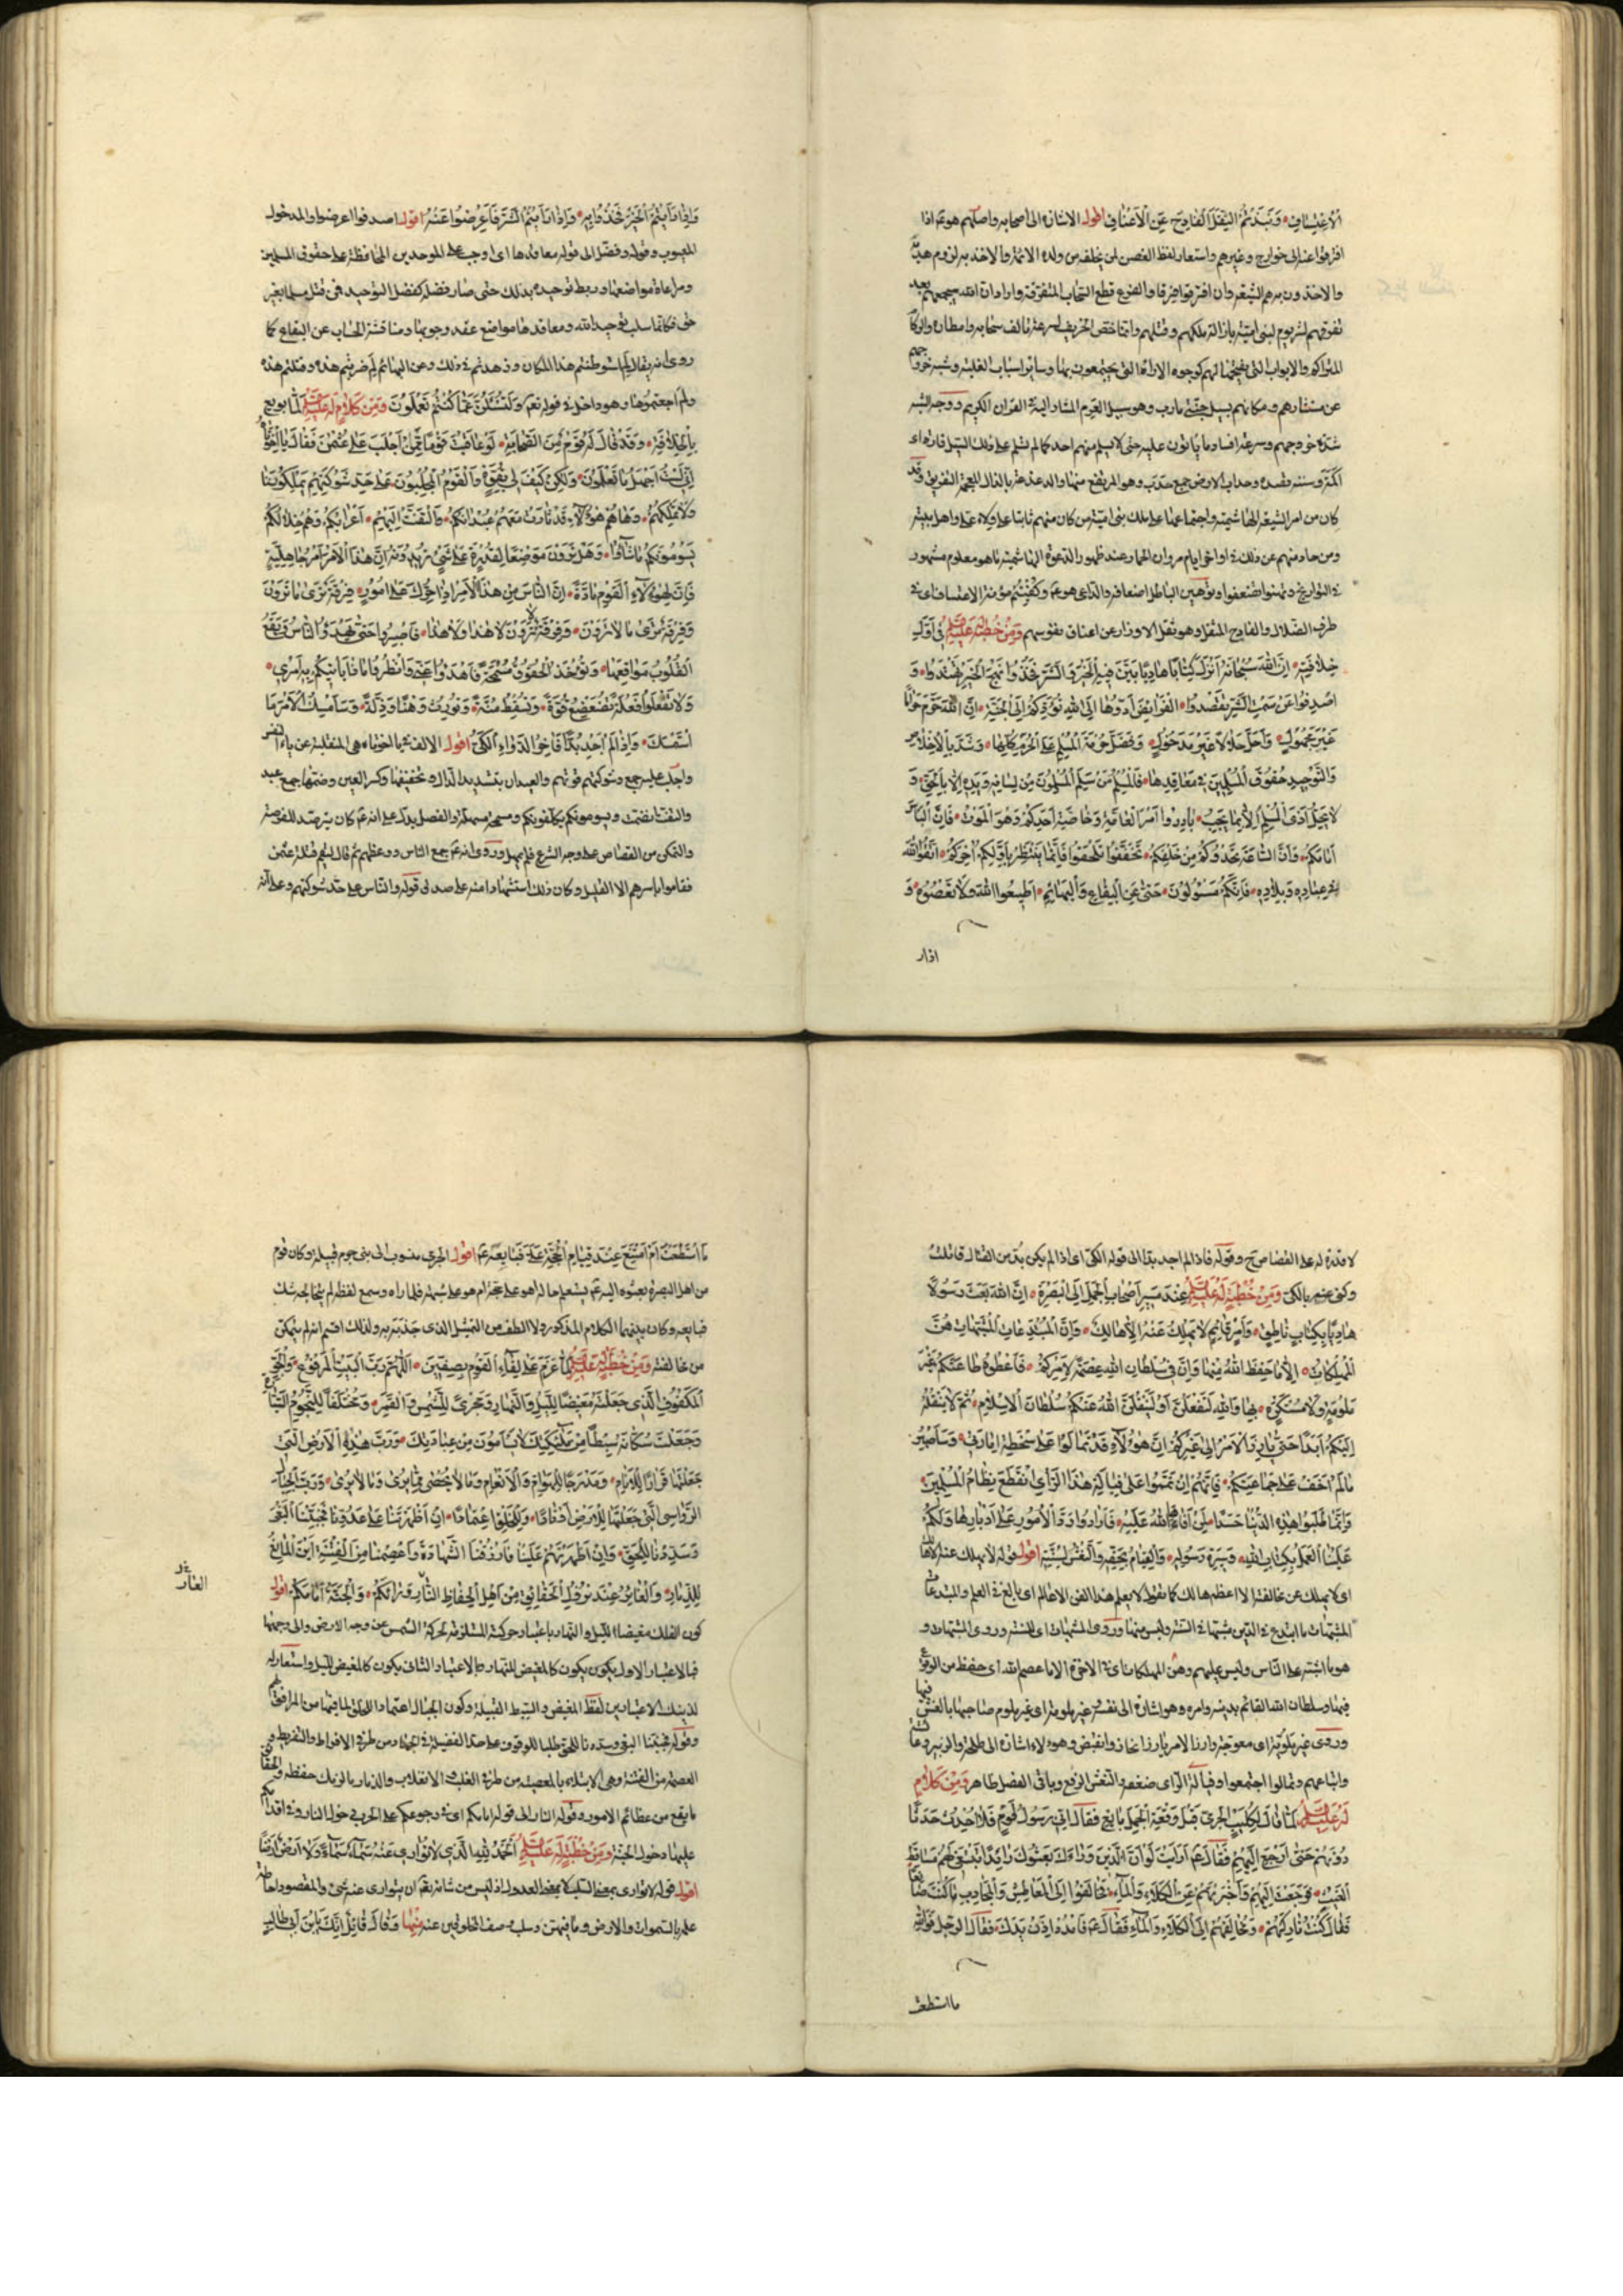 الاعتساف وَنَبَذْتُمُ الثِّقْلَ الْفَادِحَ عَنِ الْأَعْنَاقِ اقول الاشارة الى اصحابه واصلهم هو عم اذا
افترقوا عنه الى خوارج وغيرهم واستعار لفظ الغصن لمن يخلفه من ولده الائمة والاخذ به لزوم هديه
والاخذون به هم الشيعة وان افترقوا فرقا والقزع قطع السحاب المتفرقة واراد ان الله سيجمعهم بعد
تفرقهم لشر يوم لبنى امية بازالة ملكهم وقتلهم وانما خص الخريف لسرعة تالف سحابه وامطاره والركام
المتراكم والابواب التى يفتحها لهم كوجوه الاراء التى يجتمعون بها وساير اسباب الغلبة وشبه خروجهم
عن مستثارهم ومكانهم بسيل جنتى مارب وهو سيل العرم المشار اليه فى القران الكريم ووجه الشبه
شدة خروجهم وسرعة افساد ما ياتون عليه حتى لا يسلم منهم احد كما لم تسلم على ذلك السيل قارة اى
اكمة وسننه قصده وحداب الارض جمع حدب وهو المرتفع منها والذعذعة بالذال المعجمة التفريق وقد
كان من امر الشيعة الهاشمية واجتماعها على ملك بنى امية من كان منهم ثابتا على ولاء على واهل بيته
ومن حاد منهم عن ذلك فى اواخر ايام مروان الحمار عند ظهور الدعوة الهاشمية ما هو معلوم مشهور
فى التواريخ وتهنوا تضعفوا وتوهين الباطل اضعافه والداعى هو عم وكُفِيتُمْ مؤنة الاعتساف اى فى
طرق الضلال والفادح المثقل وهو ثقل الاوزار عن اعناق نفوسهم وَمِنْ خُطْبَةٍ لَهُ عَلَيْهِ السَّلَامُ فِى اَوَّلِ
خِلَافَتِهِ اِنَّ اللهَ سُبْحَانَهُ اَنْزَلَ كِتَابًا هَادِيًا بَيَّنَ فِيهِ الْخَيْرَ وَالشَّرَّ فَخُذُوا نَهْجَ الْخَيْرِ تَهْتَدُوا وَ
اصْدِفُوا عَنْ سَمْتِ الشَّرِّ تَقْصِدُوا الْفَرَائِضَ اَدُّوهَا اِلَى اللهِ تُؤَدِّكُمْ اِلَى الْجَنَّةِ اِنَّ اللهَ حَرَّمَ حَرَامًا
غَيْرَ مَجْهُولٍ وَاَحَلَّ حَلَالًا غَيْرَ مَدْخُولٍ وَفَضَّلَ حُرْمَةَ الْمُسْلِمِ عَلَى الْحُرَمِ كُلِّهَا وَشَدَّ بِالْاِخْلَاصِ
وَالتَّوْحِيدِ حُقُوقَ الْمُسْلِمِينَ فِى مَعَاقِدِهَا فَالْمُسْلِمُ مَنْ سَلِمَ الْمُسْلِمُونَ مِنْ لِسَانِهِ وَيَدِهِ اِلَّا بِالْحَقِّ وَ
لَا يَحِلُّ اَذَى الْمُسْلِمِ اِلَّا بِمَا يَجِبُ بَادِرُوا اَمْرَ الْعَامَّةِ وَخَاصَّةَ اَحَدِكُمْ وَهُوَ الْمَوْتُ فَاِنَّ النَّاسَ
اَمَامَكُمْ وَاِنَّ السَّاعَةَ تَحْدُوكُمْ مِنْ خَلْفِكُمْ تَخَفَّفُوا تَلْحَقُوا فَاِنَّمَا يُنْتَظَرُ بِاَوَّلِكُمْ اٰخِرُكُمْ اتَّقُوا اللهَ
فِى عِبَادِهِ وَبِلَادِهِ فَاِنَّكُمْ مَسْئُولُونَ حَتّٰى عَنِ الْبِقَاعِ وَالْبَهَائِمِ اَطِيعُوا اللهَ وَلَا تَعْصُوهُ وَ
اذار
وَاِذَا رَاَيْتُمُ الْخَيْرَ فَخُذُوا بِهِ وَاِذَا رَاَيْتُمُ الشَّرَّ فَاَعْرِضُوا عَنْهُ اقول اصدفوا اعرضوا والمدخول
المعيوب وقوله وفضل الى قوله معاقدها اى اوجب على الموحدين المحافظة على حقوق المسلمين
ومراعاة مواضعها وربط توحيده بذلك حتى صار فضله كفضل التوحيد فمن قتل مسلما بغير
حق فكانما سلب توحيد الله ومعاقدها مواضع عقد وجوبها ومناقشة الحساب عن البقاع كما
روى انه يقال لم استوطنتم هذا المكان وزهدتم فى ذلك وعن البهائم لم ضربتم هذه وقتلتم هذه
ولم اجعتموها وهو داخل فى قوله تعم وَلَتُسْئَلُنَّ عَمَّا كُنْتُمْ تَعْمَلُونَ وَمِنْ كَلَامٍ لَهُ عَلَيْهِ السَّلَامُ لَمَّا بويع
بِالْخِلَافَةِ وَقَدْ قَالَ لَهُ قَوْمٌ مِنَ الصَّحَابَةِ لَوْ عَاقَبْتَ قَوْمًا مِمَّنْ اَجْلَبَ عَلَى عُثْمٰنَ فَقَالَ يَا اِخْوَتَاهْ
اِنِّى لَسْتُ اَجْهَلُ مَا تَعْلَمُونَ وَلٰكِنْ كَيْفَ لِى بِقُوَّةٍ وَالْقَوْمُ الْمُجْلِبُونَ عَلَى حَدِّ شَوْكَتِهِمْ يَمْلِكُونَنَا
وَلَا نَمْلِكُهُمْ وَهَا هُمْ هٰؤُلَاءِ قَدْ ثَارَتْ مَعَهُمْ عُبْدَانُكُمْ وَالْتَفَّتْ اِلَيْهِمْ اَعْرَابُكُمْ وَهُمْ خِلَالَكُمْ
يَسُومُونَكُمْ مَا شَاؤُا وَهَلْ تَرَوْنَ مَوْضِعًا لِقُدْرَةٍ عَلَى شَىْءٍ تُرِيدُونَهُ اِنَّ هٰذَا الْاَمْرَ اَمْرُ جَاهِلِيَّةٍ
فَاِنَّ لِهٰؤُلَاءِ الْقَوْمِ مَادَّةً اِنَّ النَّاسَ مِنْ هٰذَا الْاَمْرِ اِذَا حُرِّكَ عَلَى اُمُورٍ فِرْقَةٌ تَرٰى مَا تَرَوْنَ
وَفِرْقَةٌ تَرٰى مَا لَا تَرَوْنَ وَفِرْقَةٌ لَا تَرَوْنَ لَا هٰذَا وَلَا هٰذَا فَاصْبِرُوا حَتّٰى يَهْدَؤَ النَّاسُ وَتَقَعَ
الْقُلُوبُ مَوَاقِعَهَا وَتُؤْخَذَ الْحُقُوقُ مُسْمَحَةً فَاهْدَؤُا عَنِّى وَانْظُرُوا مَا ذَا يَاتِيكُمْ بِهِ اَمْرِى
وَلَا تَفْعَلُوا فَعْلَةً تُضَعْضِعُ قُوَّةً وَتُسْقِطُ مُنَّةً وَتُورِثُ وَهْنًا وَذِلَّةً وَسَاُمْسِكُ الْاَمْرَ مَا
اسْتَمْسَكَ وَاِذَا لَمْ اَجِدْ بُدًّا فَاٰخِرُ الدَّوَاءِ الْكَىُّ اقول الالف فى يا اخوتاه هى المنقلبة عن ياء النفس
واجلب عليه جمع وشوكتهم قوتهم والعبدان بتشديد الدال وتخفيفها وكسر العين وضمها جمع عبد
والتفت انضمت ويسومونكم يكلفونكم ومسمحة مسهلة والفصل يدل على انه عم كان يترصد للفرصة
والتمكن من القصاص على وجه الشرع فلم يمهل وروى انه عم جمع الناس ووعظهم ثم قال لتقم قتلة عثمن
فقاموا باسرهم الا القليل وكان ذلك استشهادا منه على صدق قوله والناس على حد شوكتهم وعلى انه
لا قدرة له على القصاص ح وقوله فاذا لم اجد بدا الى قوله الكى اى اذا لم يكن بد من القتال قاتلت
وكنى عنه بالكى وَمِنْ خُطْبَةٍ لَهُ عَلَيْهِ السَّلَامُ عِنْدَ مَسِيرِ اَصْحَابِ الْجَمَلِ اِلَى الْبَصْرَةِ اِنَّ اللهَ بَعَثَ رَسُولًا
هَادِيًا بِكِتَابٍ نَاطِقٍ وَاَمْرٍ قَائِمٍ لَا يَهْلِكُ عَنْهُ اِلَّا هَالِكٌ وَاِنَّ الْمُبْتَدَعَاتِ الْمُشَبَّهَاتِ هُنَّ
الْمُهْلِكَاتُ اِلَّا مَا حَفِظَ اللهُ مِنْهَا وَاِنَّ فِى سُلْطَانِ اللهِ عِصْمَةً لِاَمْرِكُمْ فَاَعْطُوهُ طَاعَتَكُمْ غَيْرَ
مُلَوَّمَةٍ وَلَا مُسْتَكْرَهٍ بِهَا وَاللهِ لَتَفْعَلُنَّ اَوْ لَيَنْقُلَنَّ اللهُ عَنْكُمْ سُلْطَانَ الْاِسْلَامِ ثُمَّ لَا يَنْقُلُهُ
اِلَيْكُمْ اَبَدًا حَتّٰى يَأْرِزَ الْاَمْرُ اِلٰى غَيْرِكُمْ اِنَّ هٰؤُلَاءِ قَدْ تَمَالَؤُا عَلَى سَخْطَةِ اِمَارَتِى وَسَاَصْبِرُ
مَا لَمْ اَخَفْ عَلَى جَمَاعَتِكُمْ فَاِنَّهُمْ اِنْ تَمَّمُوا عَلَى فَيَالَةِ هٰذَا الرَّاْىِ انْقَطَعَ نِظَامُ الْمُسْلِمِينَ
وَاِنَّمَا طَلَبُوا هٰذِهِ الدُّنْيَا حَسَدًا لِمَنْ اَفَاءَهَا اللهُ عَلَيْهِ فَاَرَادُوا رَدَّ الْاُمُورِ عَلَى اَدْبَارِهَا وَلَكُمْ
عَلَيْنَا الْعَمَلُ بِكِتَابِ اللهِ وَسِيرَةِ رَسُولِهِ وَالْقِيَامُ بِحَقِّهِ وَالنَّعْشُ لِسُنَّتِهِ اقول قوله لا يهلك عنه الا هالك
اى لا يهلك عن مخالفته الا اعظم هالك كما تقول لا يعلم هذا الفن الا عالم اى بالغ فى العلم والمبتدعات
المشبهات ما ابتدع فى الدين مشبها فى السنة وليس منها وروى المشبهات اى للسنة وروى المشتبهات و
هو ما اشتبه على الناس وليس عليهم وهن المهلكات اى فى الاخرة الا ما عصم الله اى حفظ من الوقوع
فيها وسلطان الله القائم بدينه وامره وهو اشارة الى نفسه غير ملومة اى غير ملوم صاحبها بالغش فيها
وروى غير ملوية اى معوجة وارز الامر يارز انحاز وانقبض وهؤلاء اشارة الى طلحة والزبير وعايشة
واتباعهم وتمالوا اجتمعوا وفيالة الراى ضعفه والنعش الرفع وباقى الفصل ظاهر وَمِنْ كَلَامٍ
لَهُ عَلَيْهِ السَّلَامُ لَمَّا قَالَ لِكُلَيْبٍ الْجَرْمِىِّ قَبْلَ وَقْعَةِ الْجَمَلِ بَايِعْ فَقَالَ اِنِّى رَسُولُ قَوْمٍ فَلَا اُحْدِثُ حَدَثًا
دُونَهُمْ حَتّٰى اَرْجِعَ اِلَيْهِمْ فَقَالَ عم اَرَاَيْتَ لَوْ اَنَّ الَّذِينَ وَرَاءَكَ بَعَثُوكَ رَائِدًا تَبْتَغِى لَهُمْ مَسَاقِطَ
الْغَيْثِ فَرَجَعْتَ اِلَيْهِمْ فَاَخْبَرْتَهُمْ عَنِ الْكَلَاءِ وَالْمَاءِ فَخَالَفُوا اِلَى الْمَعَاطِشِ وَالْمَجَادِبِ مَا كُنْتَ صَانِعًا
فَقَالَ كُنْتُ تَارِكَهُمْ وَمُخَالِفَهُمْ اِلَى الْكَلَاءِ وَالْمَاءِ فَقَالَ عم فَامْدُدْ اِذَنْ يَدَكَ فَقَالَ الرَّجُلُ فَوَاللهِ
ما استطعت
مَا اسْتَطَعْتُ اَنْ اَمْتَنِعَ عِنْدَ قِيَامِ الْحُجَّةِ عَلَىَّ فَبَايَعْتُهُ عم اقول الجرمى منسوب الى بنى جرم قبيلة وكان قوم
من اهل البصرة بعثوه اليه عم يستعلم حاله اهو على حجة ام هو على شبهة فلما راه وسمع لفظه لم يتخالجه شك
فبايعه وكان بينهما الكلام المذكور ولا الطف من التمثيل الذى جذبه به ولذلك اقسم انه لم يتمكن
من مخالفته وَمِنْ خُطْبَةٍ لَهُ عَلَيْهِ السَّلَامُ لَمَّا عَزَمَ عَلَى لِقَاءِ الْقَوْمِ بِصِفِّينَ اَللّٰهُمَّ رَبَّ الْبَيْتِ الْمَرْفُوعِ وَالْجَوِّ
الْمَكْفُوفِ الَّذِى جَعَلْتَهُ مَغِيضًا لِلَّيْلِ وَالنَّهَارِ وَمَجْرًى لِلشَّمْسِ وَالْقَمَرِ وَمُخْتَلَفًا لِلنُّجُومِ السَّيَّارَةِ
وَجَعَلْتَ سُكَّانَهُ سِبْطًا مِنْ مَلٰئِكَتِكَ لَا يَسْاَمُونَ مِنْ عِبَادَتِكَ وَرَبَّ هٰذِهِ الْاَرْضِ الَّتِى
جَعَلْتَهَا قَرَارًا لِلْاَنَامِ وَمَدْرَجًا لِلْهَوَامِّ وَالْاَنْعَامِ وَمَا لَا يُحْصٰى مِمَّا يُرٰى وَمَا لَا يُرٰى وَرَبَّ الْجِبَالِ
الرَّوَاسِى الَّتِى جَعَلْتَهَا لِلْاَرْضِ اَوْتَادًا وَلِلْخَلْقِ اعْتِمَادًا اِنْ اَظْهَرْتَنَا عَلَى عَدُوِّنَا فَجَنِّبْنَا الْبَغْىَ
وَسَدِّدْنَا لِلْحَقِّ وَاِنْ اَظْهَرْتَهُمْ عَلَيْنَا فَارْزُقْنَا الشَّهَادَةَ وَاعْصِمْنَا مِنَ الْفِتْنَةِ اَيْنَ الْمَانِعُ
لِلذِّمَارِ وَالْغَائِرُ عِنْدَ نُزُولِ الْحَقَائِقِ مِنْ اَهْلِ الْحِفَاظِ النَّارُ وَرَائَكُمْ وَالْجَنَّةُ اَمَامَكُمْ اقول
كون الفلك مغيضا لليل والنهار باعتبار حركته المستلزمة لحركة الشمس عن وجه الارض والى وجهها
فبالاعتبار الاول يكون يكون كالمغيض للنهار وبالاعتبار الثانى يكون كالمغيض لليل واستعار له
لذينك الاعتبارين لفظ المغيض والسبط القبيلة وكون الجبال اعتمادا للخلق لما فيها من المرافق لهم
وقوله فجنبنا البغى وسددنا للحق طلبا للوقوف على حد الفضيلة فى الجهاد من طرفى الافراط والتفريط و
العصمة من الفتنة وهى الابتلاء بالمعصية من طرفى الغلب والانقلاب والذمار ما لزمك حفظه والحقائق
ما يقع من عظائم الامور وقوله النار الى قوله امامكم اى فى رجوعكم على الحرب دخول النار وفى اقدامكم
عليها دخول الجنة وَمِنْ خُطْبَةٍ لَهُ عَلَيْهِ السَّلَامُ اَلْحَمْدُ لِلهِ الَّذِى لَا تُوَارِى عَنْهُ سَمَاءٌ سَمَاءً وَلَا اَرْضٌ اَرْضًا
اقول قوله لا توارى بمعنى السلب لا بمعنى العدول اذ ليس من شانه تعم ان يتوارى عنه شئ والمقصود احاطة
علمه بالسموات والارض وما فيهن وسلب صفة المخلوقين عنه مِنْهَا وَقَالَ قَائِلٌ اِنَّكَ يَا ابْنَ اَبِى طَالِبٍ